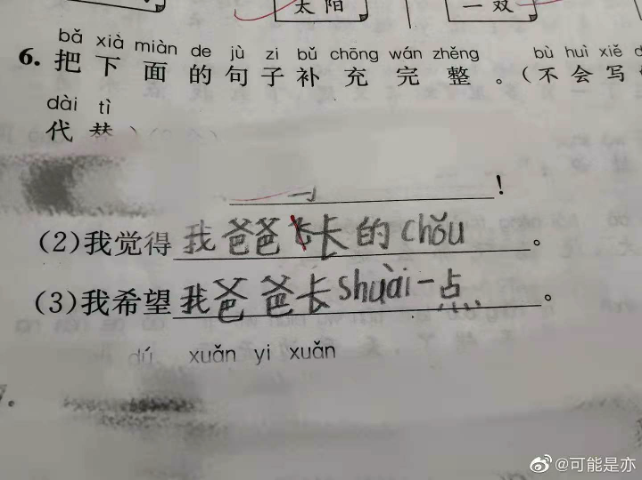 太阳 一双
bǎ xià miàn de jù zi bǔ chōng wán zhěng bù huì xiě
6. 把下面的句子补充完整。(不会写
dài tì
代替)
!
(2)我觉得我爸爸长的chǒu。
(3)我希望我爸爸长shuài一点。
dú xuǎn yi xuǎn
@可能是亦